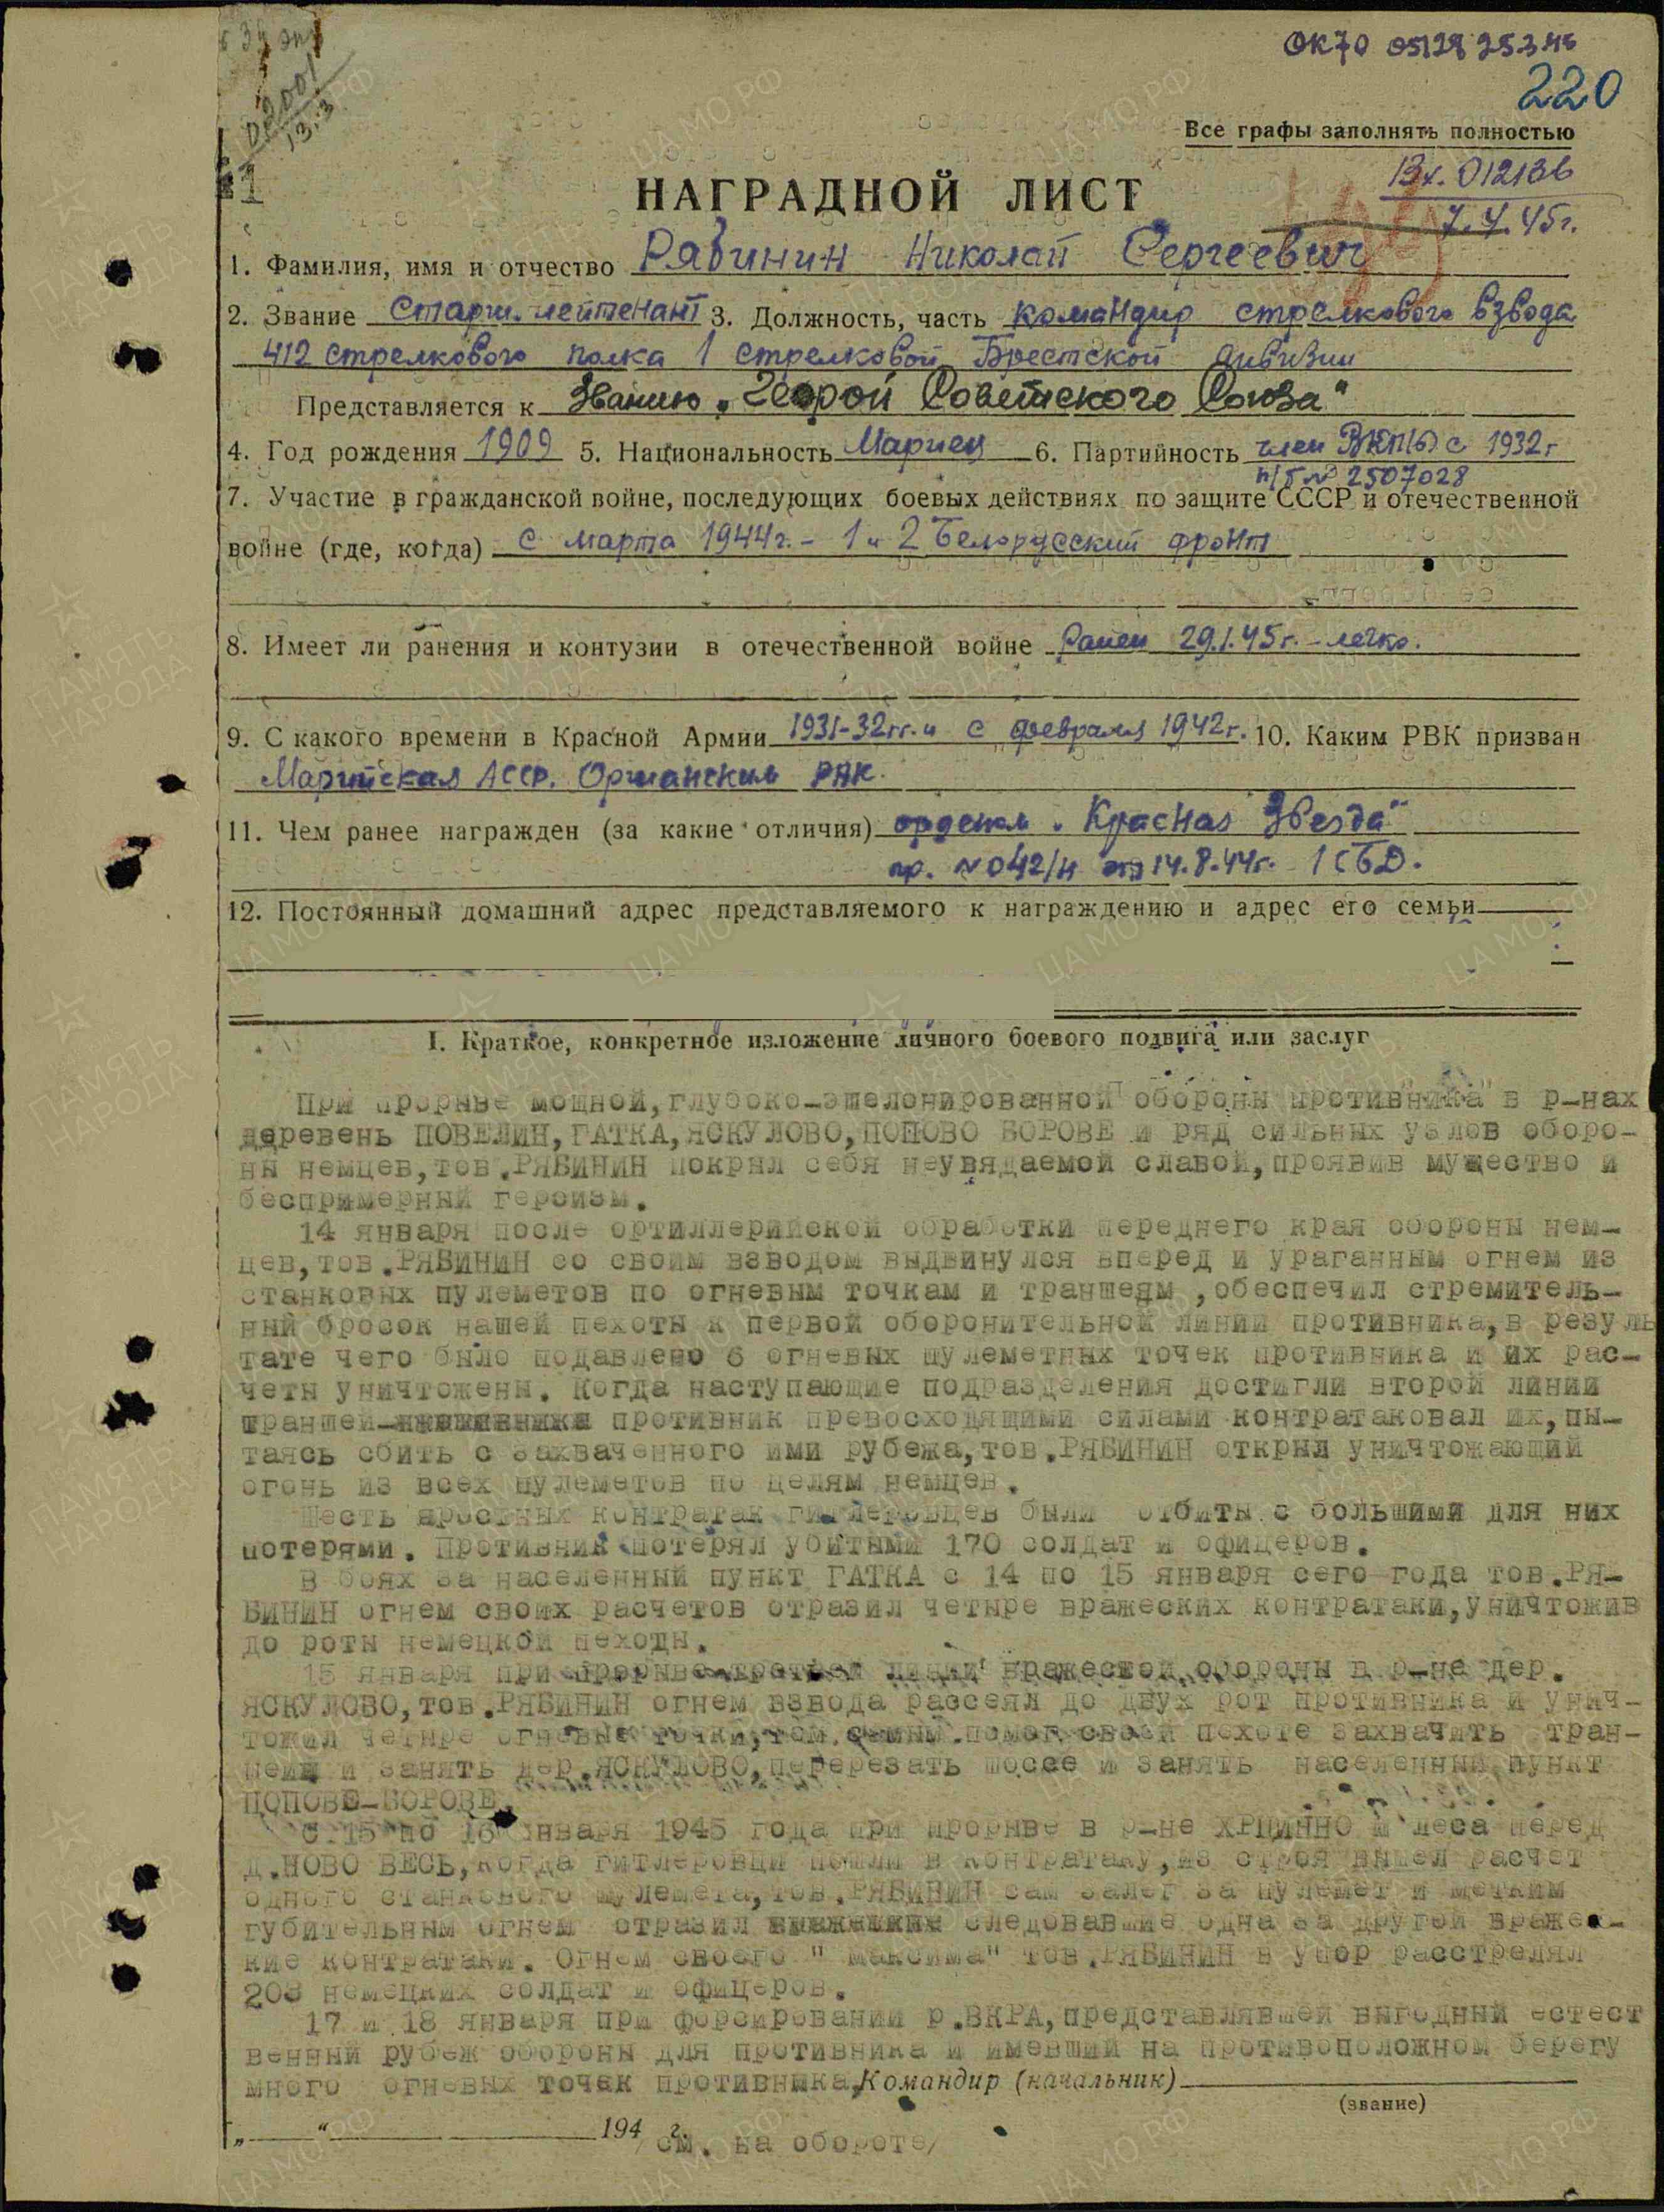 ОК70 05129 25.3.45
220
02001
13.3
Все графы заполнять полностью
Вх. 012136
7.4.45г.
1
НАГРАДНОЙ ЛИСТ
1. Фамилия, имя и отчество Рябинин Николай Сергеевич
2. Звание Старш. лейтенант 3. Должность, часть командир стрелкового взвода
412 стрелкового полка 1 стрелковой Брестской дивизии
Представляется к званию „Герой Советского Союза"
4. Год рождения 1909 5. Национальность Мариец 6. Партийность член ВКП(б) с 1932г
п/б № 2507028
7. Участие в гражданской войне, последующих боевых действиях по защите СССР и отечественной
войне (где, когда) с марта 1944г. - 1 и 2 Белорусский фронт
8. Имеет ли ранения и контузии в отечественной войне Ранен 29.1.45г. - легко.
9. С какого времени в Красной Армии 1931-32гг. и с февраля 1942г. 10. Каким РВК призван
Марийская АССР. Оршанским РВК.
11. Чем ранее награжден (за какие отличия) орденом „Красная Звезда"
пр. №042/н от 14.8.44г. 1 СБД.
12. Постоянный домашний адрес представляемого к награждению и адрес его семьи
I. Краткое, конкретное изложение личного боевого подвига или заслуг
При прорыве мощной, глубоко-эшелонированной обороны противника в р-нах
деревень ПОВЕЛИН, ГАТКА, ЯСКУЛОВО, ПОПОВО БОРОВЕ и ряд сильных узлов оборо-
ны немцев, тов. РЯБИНИН покрыл себя неувядаемой славой, проявив мужество и
беспримерный героизм.
14 января после ортиллерийской обработки переднего края обороны нем-
цев, тов. РЯБИНИН со своим взводом выдвинулся вперед и ураганным огнем из
станковых пулеметов по огневым точкам и траншеям, обеспечил стремитель-
ный бросок нашей пехоты к первой оборонительной линии противника, в резуль
тате чего было подавлено 6 огневых пулеметных точек противника и их рас-
четы уничтожены. Когда наступающие подразделения достигли второй линии
траншей- противник превосходящими силами контратаковал их, пы-
таясь сбить с захваченного ими рубежа, тов. РЯБИНИН открыл уничтожающий
огонь из всех пулеметов по целям немцев.
Шесть яростных контратак гитлеровцев были отбиты с большими для них
потерями. Противник потерял убитыми 170 солдат и офицеров.
В боях за населенный пункт ГАТКА с 14 по 15 января сего года тов. РЯ-
БИНИН огнем своих расчетов отразил четыре вражеских контратаки, уничтожив
до роты немецкой пехоты.
15 января при прорыве третьей линии вражеской обороны в р-не дер.
ЯСКУЛОВО, тов. РЯБИНИН огнем взвода рассеял до двух рот противника и унич-
тожил четыре огневые точки, тем самым помог своей пехоте захватить тран-
шеи и занять дер. ЯСКУЛОВО, перерезать шоссе и занять населенный пункт
ПОПОВО-БОРОВЕ.
С 15 по 16 января 1945 года при прорыве в р-не ХРЦИННО и леса перед
д. НОВО ВЕСЬ, когда гитлеровцы пошли в контратаку, из строя вышел расчет
одного станкового пулемета, тов. РЯБИНИН сам залег за пулемет и метким
губительным огнем отразил следовавшие одна за другой вражес-
кие контратаки. Огнем своего "максима" тов. РЯБИНИН в упор расстрелял
203 немецких солдат и офицеров.
17 и 18 января при форсировании р. ВКРА, представлявшей выгодный естест
венный рубеж обороны для противника и имевший на противоположном берегу
много огневых точек противника, Командир (начальник)
(звание)
„ “ 194 г.
/см. на обороте/